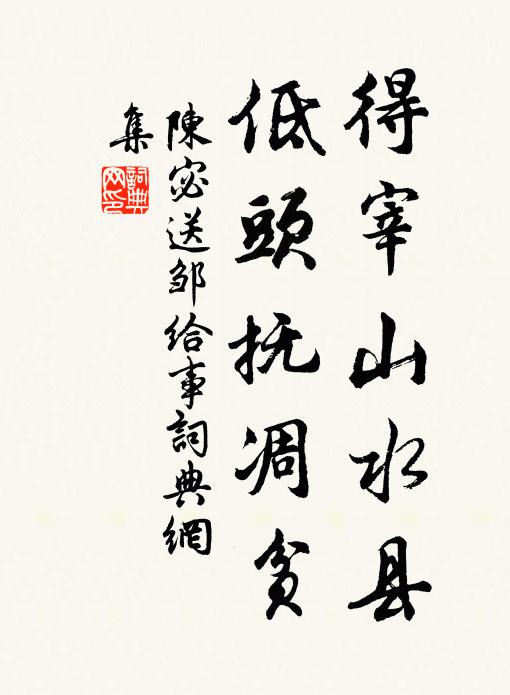 得宰山水县
低頭抚凋贫
陳宓送邹给事詞典網
集
詞典网印